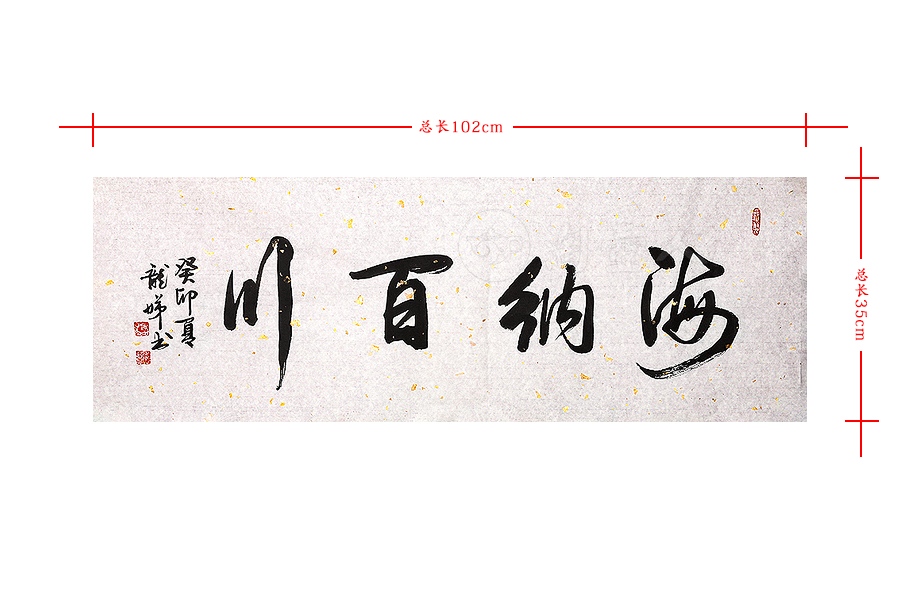 总长102cm
海纳百川
癸卯夏
龙娣书
总长35cm